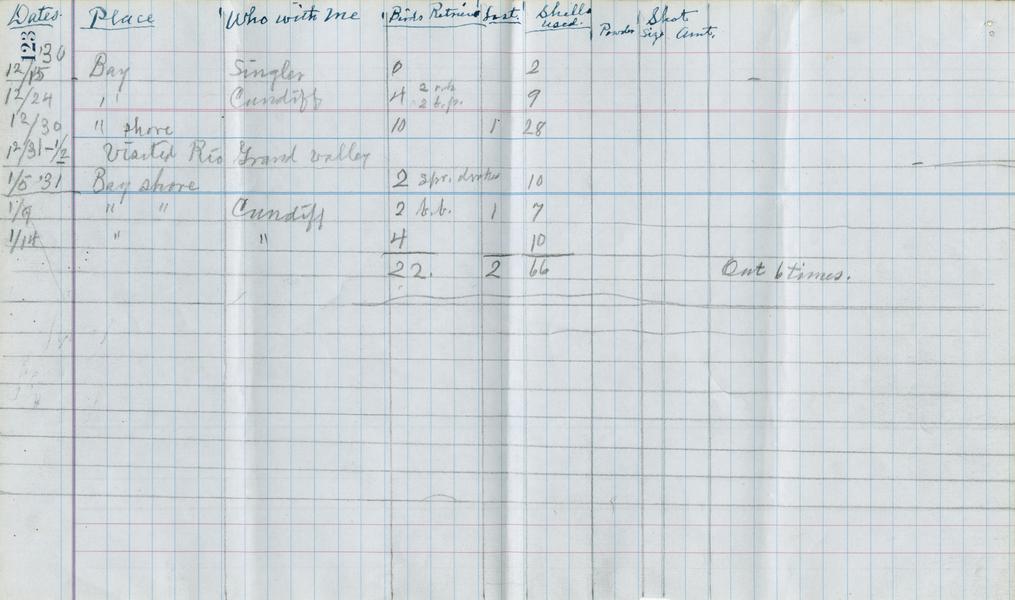 Dates. Place Who with me Birds Retrieved Lost. Shells used. Powder Shot Size Amt.
123
'30
12/15 Bay Singler 0 2
12/24 " Cundiff 4 2 r.h. 9
2 b.p.
12/30 " shore 10 1 28
12/31-1/2 Visited Rio Grand valley
1/5 '31 Bay shore 2 spr. drakes 10
1/9 " " Cundiff 2 b.b. 1 7
1/14 " " 4 10
22. 2 66 Out 6 times.